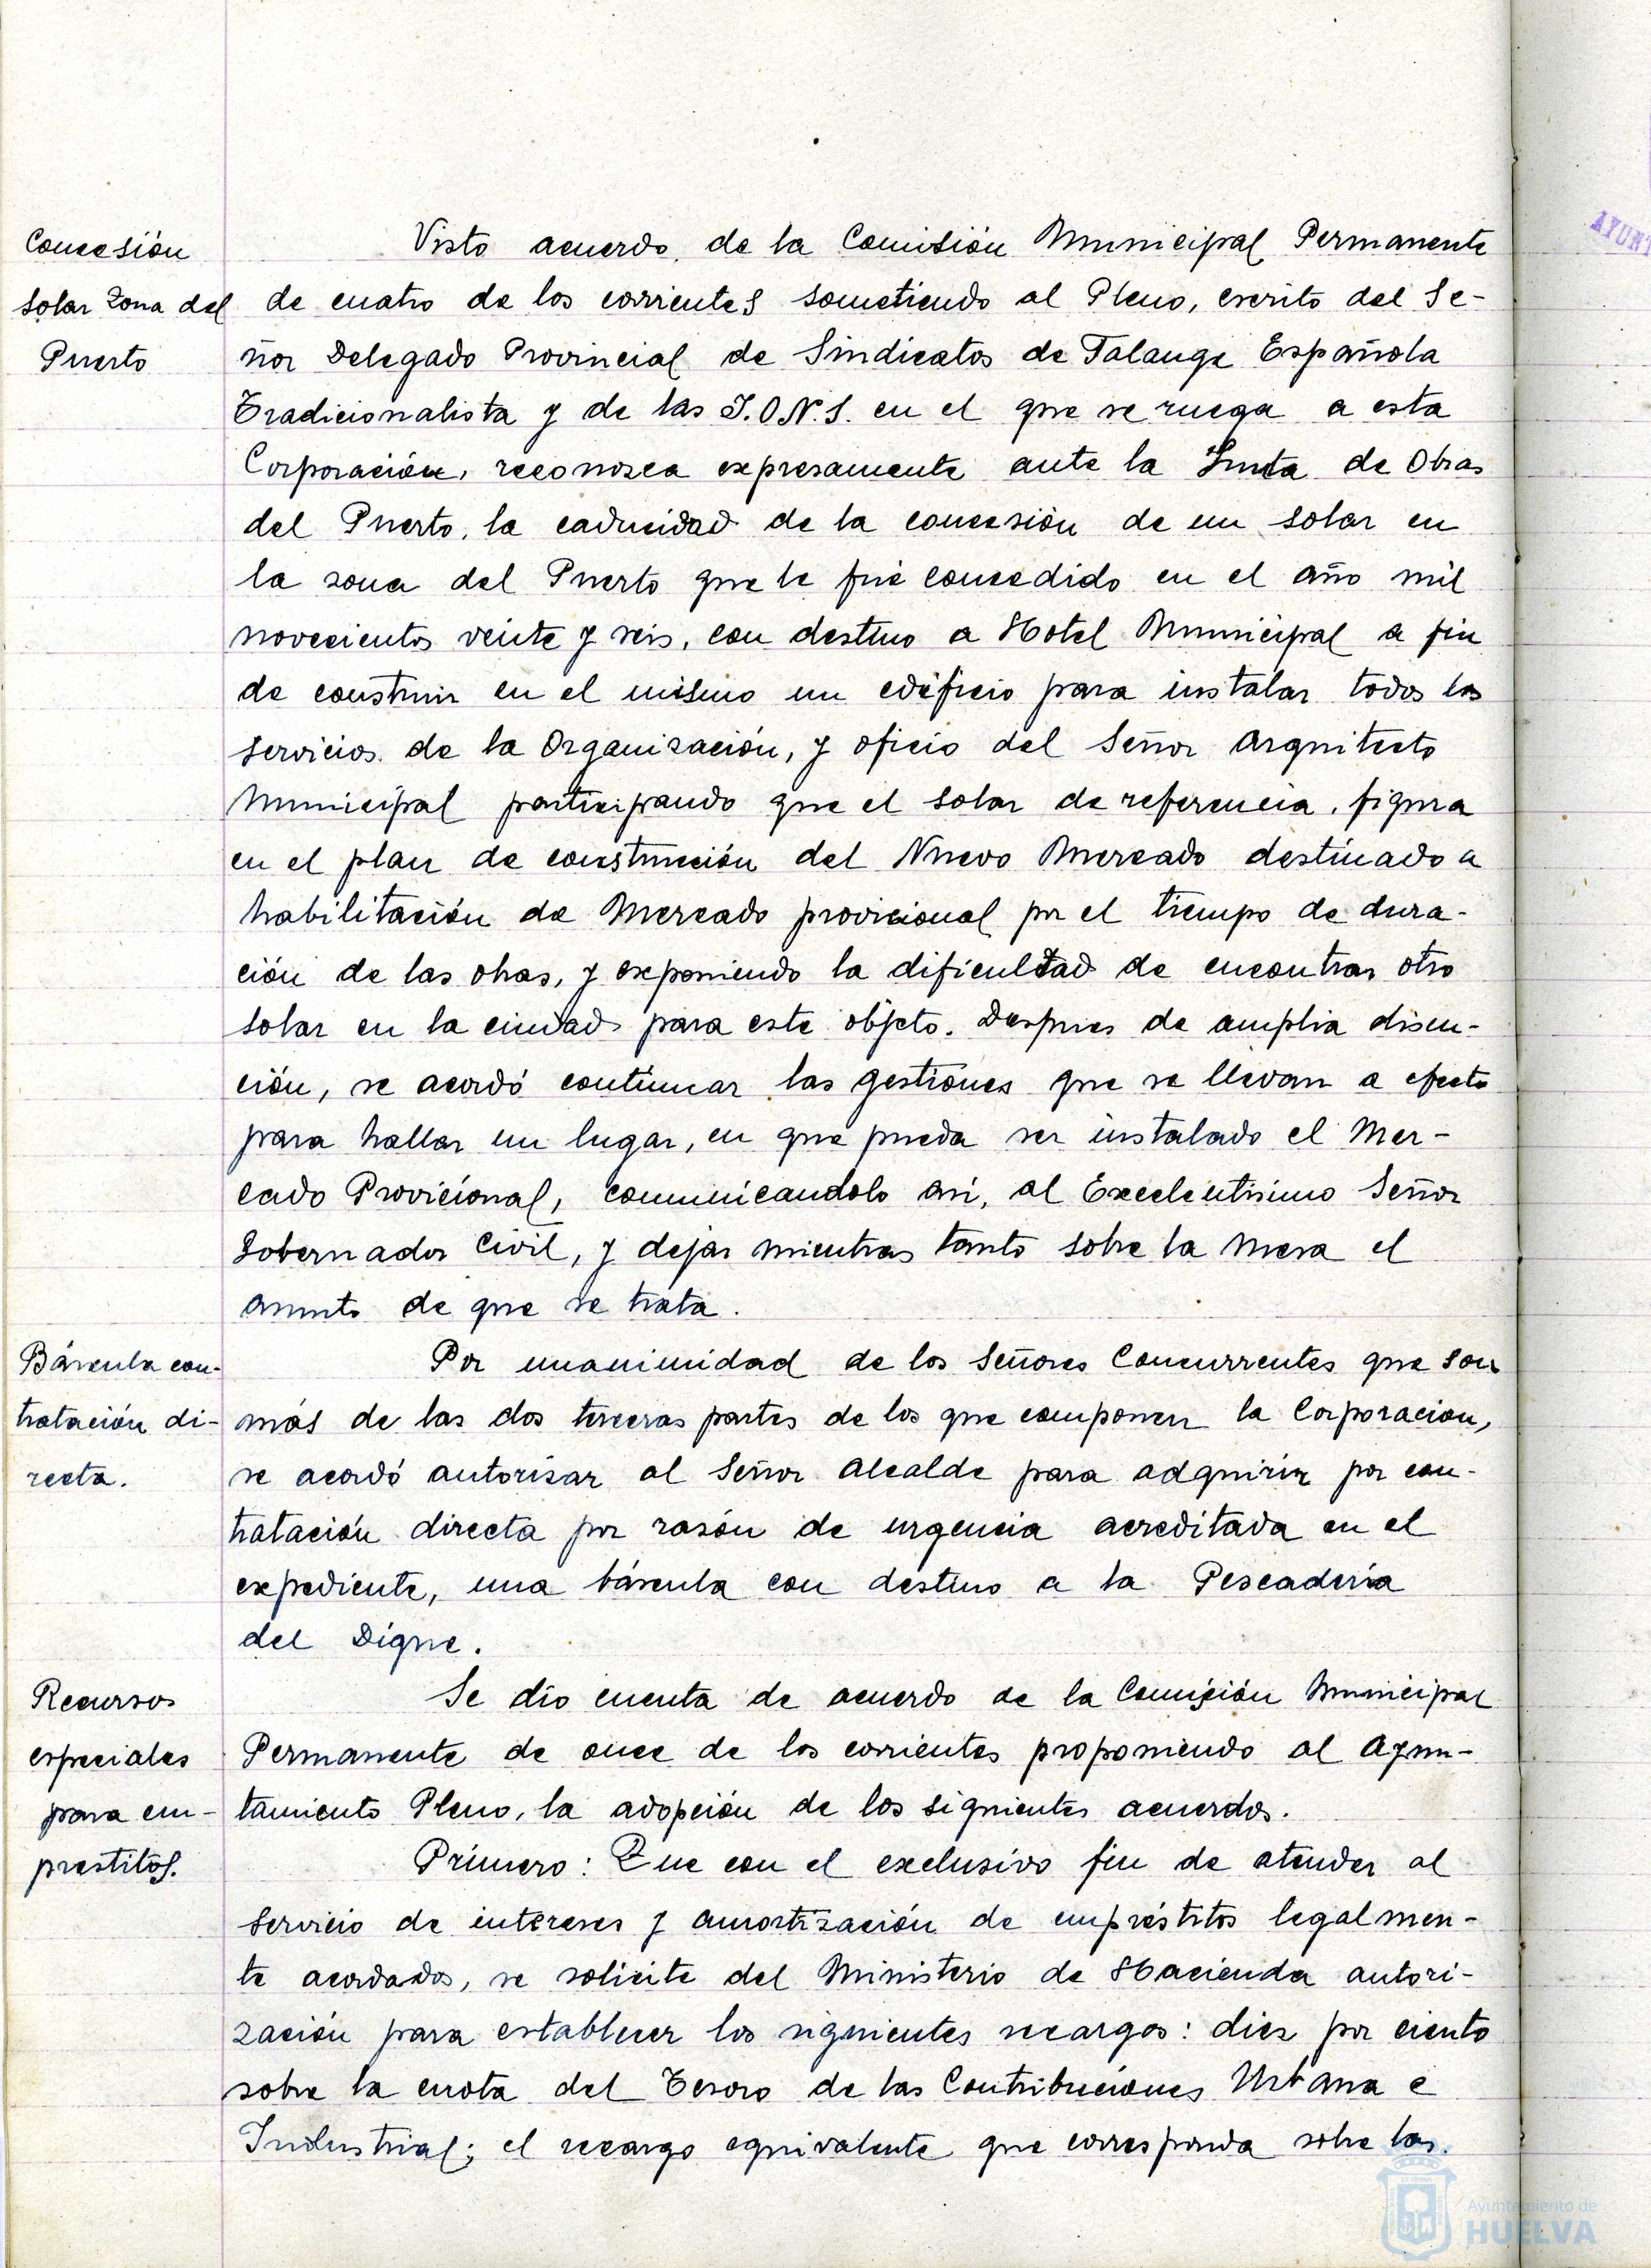 Concesión
solar Zona del
Puerto
Visto acuerdo de la Comisión Municipal Permanente
de cuatro de los corrientes sometiendo al Pleno, escrito del Se-
ñor Delegado Provincial de Sindicatos de Falange Española
Tradicionalista y de las J.O.N.S. en el que se ruega a esta
Corporación, reconozca expresamente ante la Junta de Obras
del Puerto, la caducidad de la concesión de un solar en
la zona del Puerto que le fué concedido en el año mil
novecientos veinte y seis, con destino a Hotel Municipal a fin
de construir en el mismo un edificio para instalar todos los
servicios de la Organización, y oficio del Señor Arquitecto
Municipal participando que el solar de referencia, figura
en el plan de construcción del Nuevo Mercado destinado a
habilitación de Mercado provicional por el tiempo de dura-
ción de las obras, y exponiendo la dificultad de encontrar otro
solar en la ciudad para este objeto. Despues de amplia discu-
ción, se acordó continuar las gestiones que se llevan a efecto
para hallar un lugar, en que pueda ser instalado el Mer-
cado Provicional, comunicandolo asi, al Excelentisimo Señor
Gobernador Civil, y dejar mientras tanto sobre la mesa el
asunto de que se trata.
Báscula con-
tratación di-
recta.
Por unanimidad de los Señores Concurrentes que son
más de las dos terceras partes de los que componen la Corporación,
se acordó autorizar al Señor Alcalde para adquirir por con-
tratación directa por razón de urgencia acreditada en el
expediente, una báscula con destino a la Pescadería
del Dique.
Recursos
especiales
para em-
prestitos.
Se dío cuenta de acuerdo de la Comisión Municipal
Permanente de once de los corrientes proponiendo al Ayun-
tamiento Pleno, la adopción de los siguientes acuerdos.
Primero: Que con el exclusivo fin de atender al
servicio de intereses y amortización de empréstitos legalmen-
te acordados, se solicite del Ministerio de Hacienda autori-
zación para establecer los siguientes recargos: diez por ciento
sobre la cuota del Tesoro de las Contribuciones Urbana e
Industrial; el recargo equivalente que corresponda sobre las
AYUNT
Ayuntamiento de
HUELVA